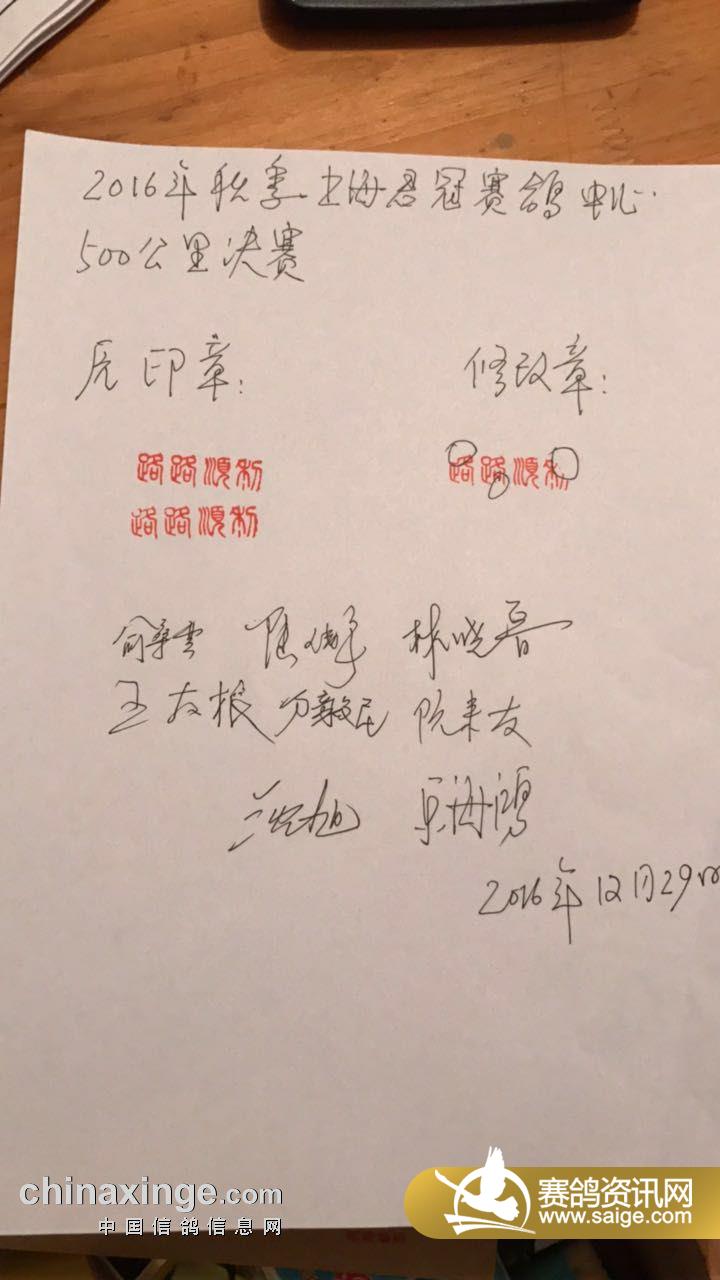 2016年秋季上海君冠赛鸽中心
500公里决赛
原印章: 修改章:
路路顺利 路路顺利
路路顺利
林晓春
王友根 阮来友
2016年12月29日
chinaxinge.com
中国信鸽信息网
赛鸽资讯网
www.saige.com